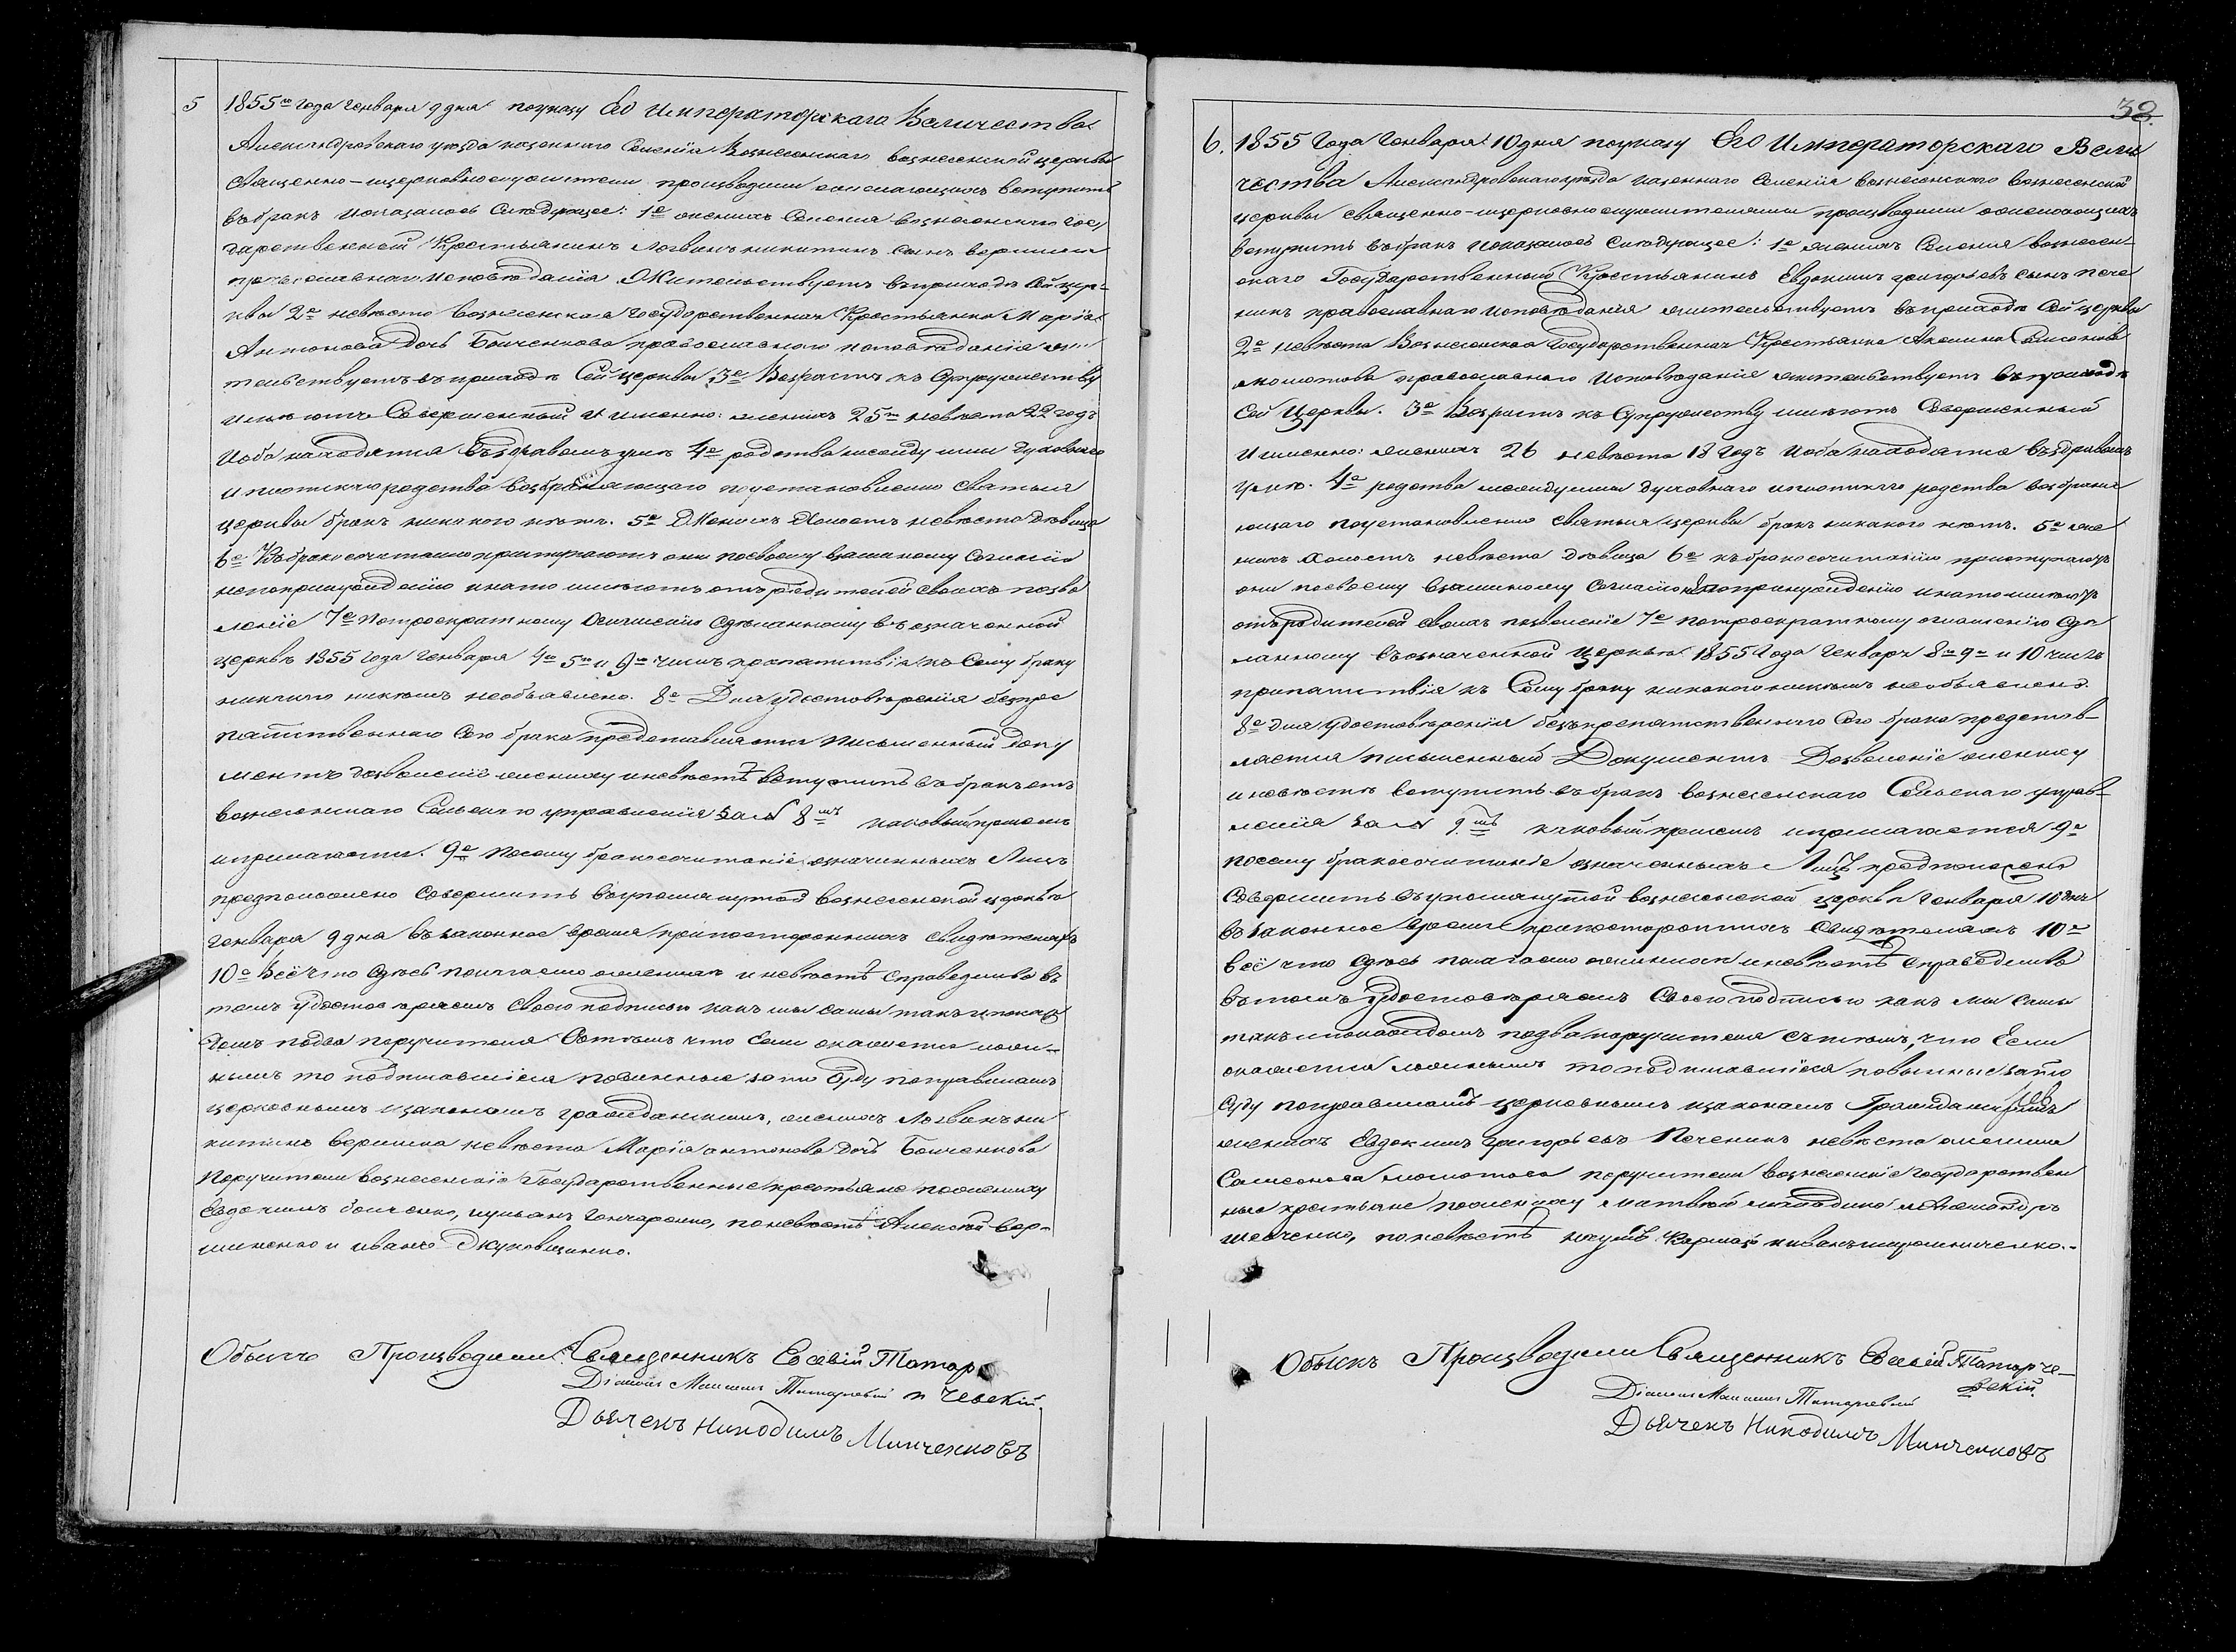 5 1855го года Генваря 9 дня по указу Его Императорскаго Величества
Александровскаго уезда казеннаго Селенія Вознесенскаго вознесенской церкви
священно-ицерковнослужители производили о желающихъ вступить
въ бракъ и оказалось Следующее: 1е женихъ Селенія вознесенскаго Госу
дарственной Крестьянинъ Логвинъ никитинъ сынъ вершина
православнаго исповѣданія Жительствуетъ въ приходѣ Сей цер-
кви 2е невѣста вознесенская государственная Крестьянка Марія
Антонова дочь Бойченкова православнаго исповѣданія жи
тельствуетъ въ приходѣ Сей церкви 3е Возрастъ къ Супружеству
имѣютъ Совершенный и именно: женихъ 25ть невѣста 22 годъ
И оба находятся въ здравомъ умѣ 4е родства между ими духовнаго
и плотскаго родства возбраняющаго по установленію святыя
церкви бракъ никакого нѣтъ. 5е Женихъ Холостъ невѣста дѣвица
6е Къ бракосочетанію приступаютъ они по своему взаимному Согласію
непопринужденію и на то имѣютъ отъ родителей своихъ позво
леніе 7е По троекратному Оглашенію Сдѣланному въ означенной
церквѣ 1855 года Генваря 4го 5го и 9го числъ препятствія къ Сему браку
никакого никѣмъ необъявлено. 8е Для удостовѣренія безпре
пятственнаго Сего брака представляется Письменный доку
ментъ дозволеніе жениху и невѣстѣ вступить въ бракъ отъ
вознесенскаго Сельскаго управленія за № 8мъ каковый при семъ
и прилагается. 9е Посему бракосочетаніе означенныхъ Лицъ
предположено Совершить въ упомянутой вознесенской церквѣ
Генваря 9 дня въ законное время при постороннихъ свидѣтеляхъ
10е Всё что Сдѣсь показано о женихѣ и невѣстѣ справедливо въ
томъ удостовѣряемъ своею подписью какъ мы сами такъ и по каж
домъ по два поручителя Съ тѣмъ что Если окажется лож-
нымъ то подписавшіеся повинные за то Суду по правиламъ
церковнымъ и законамъ гражданскимъ, женихъ Логвинъ ни
китинъ вершина невѣста Марія антонова дочь Бойченкова
Поручители вознесенскіе Государственные крестьяне по жениху
Евдокимъ бойченко, лукьянъ гончаренко, по невѣстѣ Алексѣй вер-
шиненко и иванъ Жуковиценко.
Обыскъ Производили: Священникъ Евсевій Татар
чевскій
Діаконъ Максимъ Татарчевскій
Дьячекъ Никодимъ Минченковъ
38.
6. 1855 года Генваря 10 дня по указу Его Императорскаго Вели
чества Александровскаго уезда казеннаго Селенія вознесенскаго вознесенской
церкви священно-ицерковнослужителями производили о желающихъ
вступить въ бракъ и оказалось Следующее: 1е женихъ Селенія вознесен-
скаго Государственный Крестьянинъ Евдокимъ григорьевъ сынъ пече
никъ православнаго исповѣданія жительствуетъ въ приходѣ Сей церкви
2е невѣста Вознесенская Государственная Крестьянка Акилина Самсонова
православнаго исповѣданія жительствуетъ въ приходѣ
Сей Церкви. 3е Возрастъ къ Супружеству имѣютъ Совершенный
И именно: женихъ 26 невѣста 18 годъ и оба находятся въ здравомъ
умѣ. 4е родства между ими духовнаго и плотскаго родства возбраня
ющаго по установленію святыя церкви бракъ никакого нѣтъ. 5е же
нихъ холостъ невѣста дѣвица 6е къ бракосочитанію приступаютъ
они по своему взаимному Согласію непопринужденію и на то имѣютъ
отъ родителей своихъ позволеніе 7е по троекратному оглашенію Сдѣ
ланному въ означенной Церквѣ 1855 года Генваря 8го 9го и 10 числъ
препятствія къ Сему браку никакого никѣмъ необъявлено.
8е Для удостовѣренія безъпрепятственнаго Сего брака представ-
ляется письменный Документъ Дозволеніе жениху
и невѣстѣ вступить въ бракъ вознесенскаго Сельскаго управ-
ленія за № 9мъ каковый при семъ и прилагается 9е
посему бракосочитаніе означенныхъ Лицъ предположено
Совершить въ упомянутой вознесенской церквѣ Генваря 10 дня
въ законное время при постороннихъ Свидѣтеляхъ 10е
всё что Сдѣсь показано о женихѣ и невѣстѣ Справедливо
въ томъ Удостовѣряемъ Своею подписью какъ мы Сами
такъ и по каждомъ по два поручителя Съ тѣмъ, что Если
окажется ложнымъ то подписавшіеся повинные за то
Суду по правиламъ церковнымъ и законамъ Гражданскимъ
женихъ Евдокимъ Григорьевъ Печеникъ невѣста акилина
Самсонова поручители вознесенскіе государствен
ные крестьяне по жениху Матвѣй и Александръ
шевченко, по невѣстѣ и иванъ мирошниченко.-
Обыскъ Производили Священникъ Евсевій Татарче-
вскій.
Діаконъ Максимъ Татарчевскій
Дьячекъ Никодимъ Минченковъ